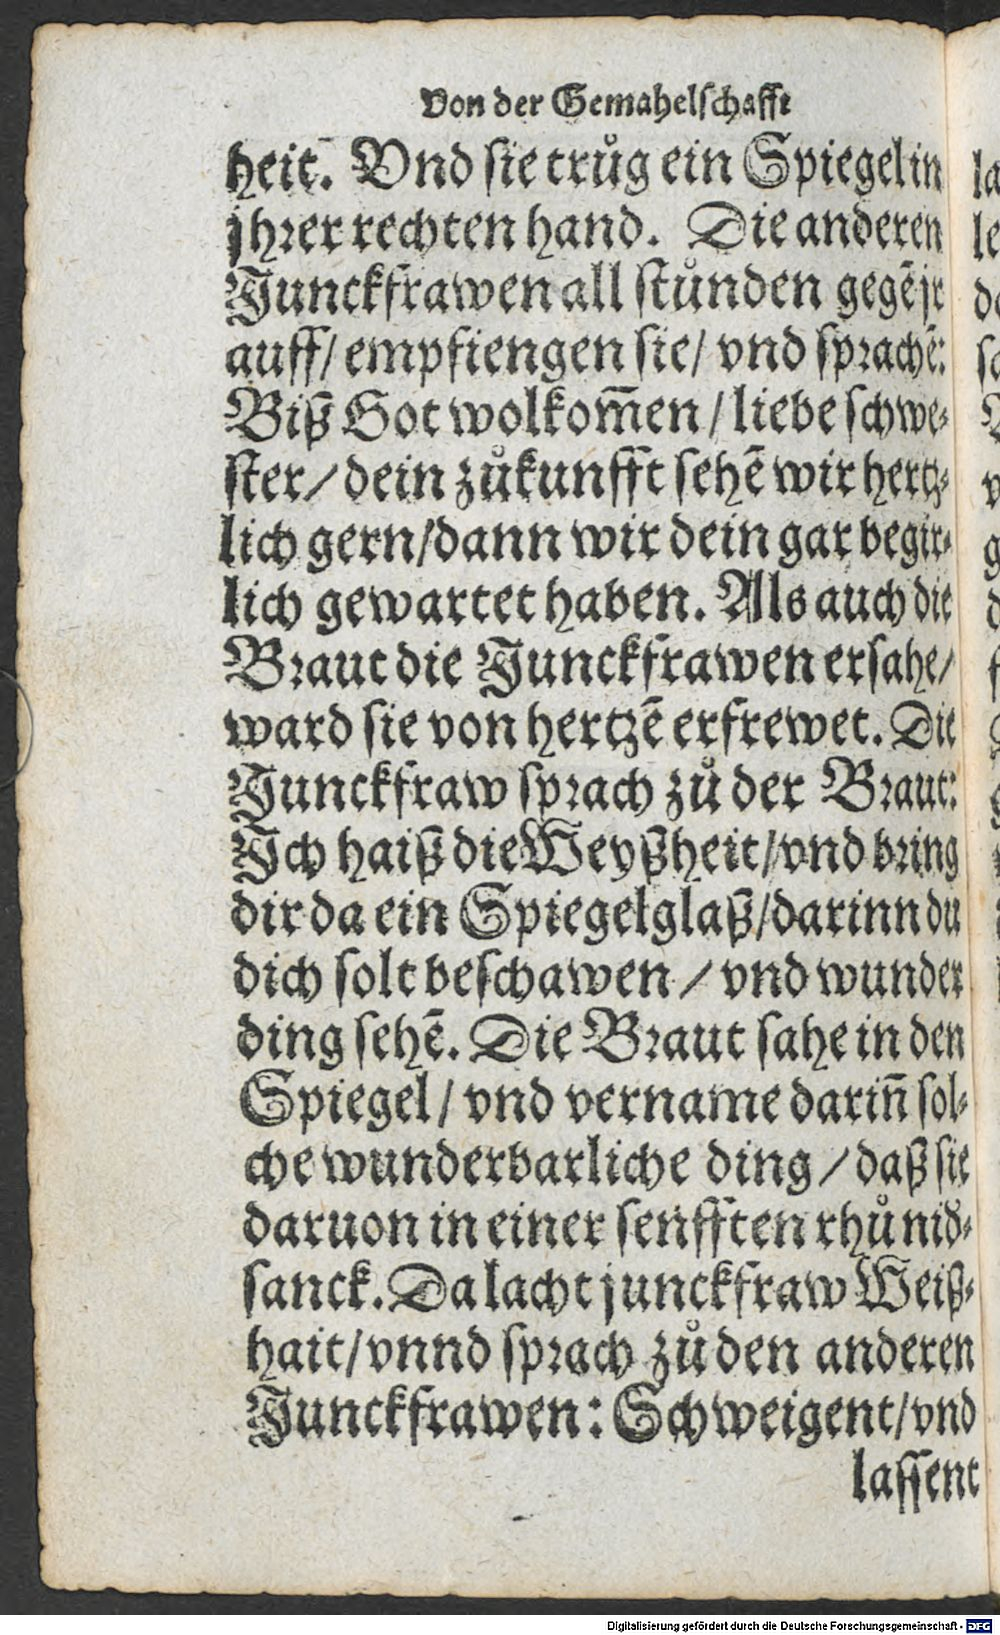 Von der Gemahelschafft
heit. Vnd sie trůg ein Spiegel in
jhrer rechten hand. Die anderen
Junckfrawen all stůnden gegē jr
auff/ empfiengen sie/ vnd sprachē:
Biß Got wolkom̃en/ liebe schwe-
ster/ dein zůkunfft sehē wir hertz-
lich gern/ dann wir dein gar begir-
lich gewartet haben. Als auch die
Braut die Junckfrawen ersahe/
ward sie von hertzē erfrewet. Die
Junckfraw sprach zů der Braut:
Ich haiß die Weyßheit/ vnd bring
dir da ein Spiegelglaß/ darinn du
dich solt beschawen/ vnd wunder
ding sehē. Die Braut sahe in den
Spiegel/ vnd vername dariñ sol-
che wunderbarliche ding/ daß sie
daruon in einer senfften rhů nid-
sanck. Da lacht junckfraw Weiß-
hait/ vnnd sprach zů den anderen
Junckfrawen: Schweigent/ vnd
lassent
Digitalisierung gefördert durch die Deutsche Forschungsgemeinschaft - DFG